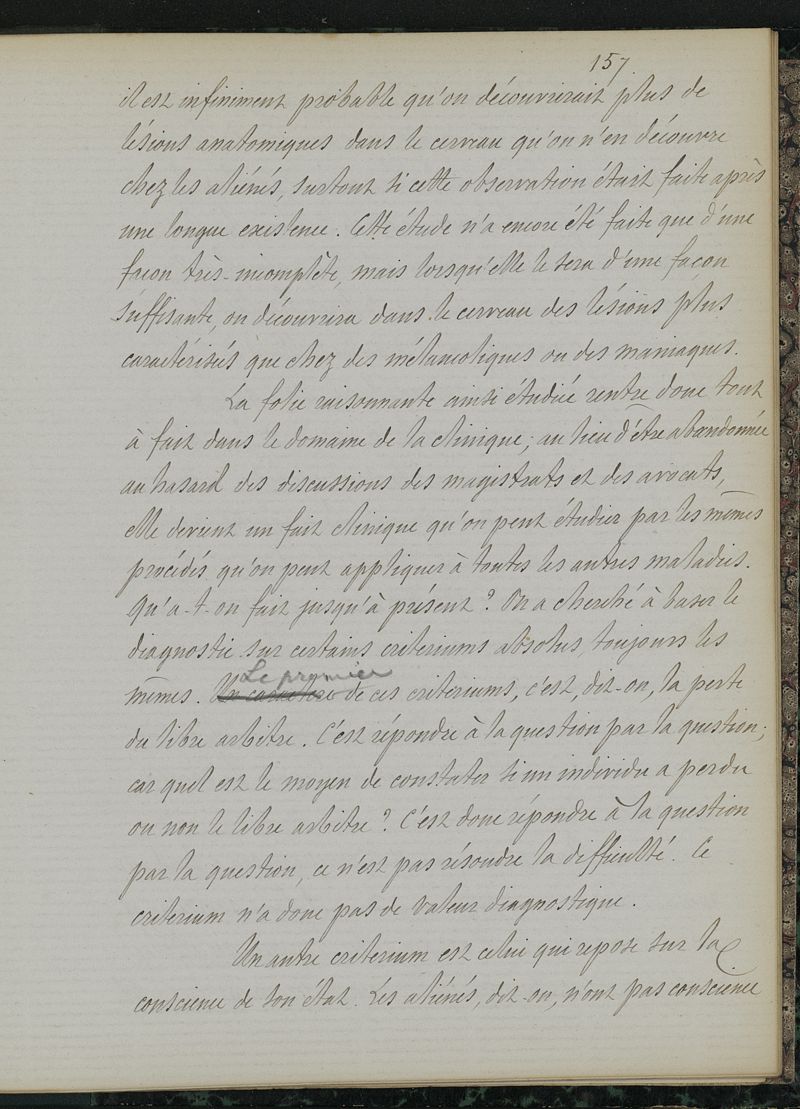 157.
il est infiniment probable qu'on découvrirait plus de
lésions anatomiques dans le cerveau qu'on n'en découvre
chez les aliénés, surtout si cette observation était faite après
une longue existence. Cette étude n'a encore été faite que d'une
facon très-incomplète, mais lorsqu'elle le sera d'une facon
suffisante, on découvrira dans le cerveau des lésions plus
caractérisés que chez des mélancoliques ou des maniaques.
La folie raisonnante ainsi étudiée rentre donc tout
à fait dans le domaine de la clinique; au lieu d'être abandonnée
au hasard des discussions des magistrats et des avocats,
elle devient un fait clinique qu'on peut étudier par les mêmes
procédés qu'on peut appliquer à toutes les autres maladies.
Qu'a-t-on fait jusqu'à présent? On a cherché à baser le
diagnostic sur certains criteriums absolus, toujours les
Le premier
mêmes. Un caractère de ces criteriums, c'est, dit-on, la perte
du libre arbitre. C'est répondre à la question par la question;
car quel est le moyen de constater si un individu a perdu
ou non le libre arbitre? C'est donc répondre à la question
par la question, ce n'est pas résoudre la difficulté. Ce
criterium n'a donc pas de valeur diagnostique.
Un autre criterium est celui qui repose sur la
conscience de son état. Les aliénés, dit-on, n'ont pas conscience